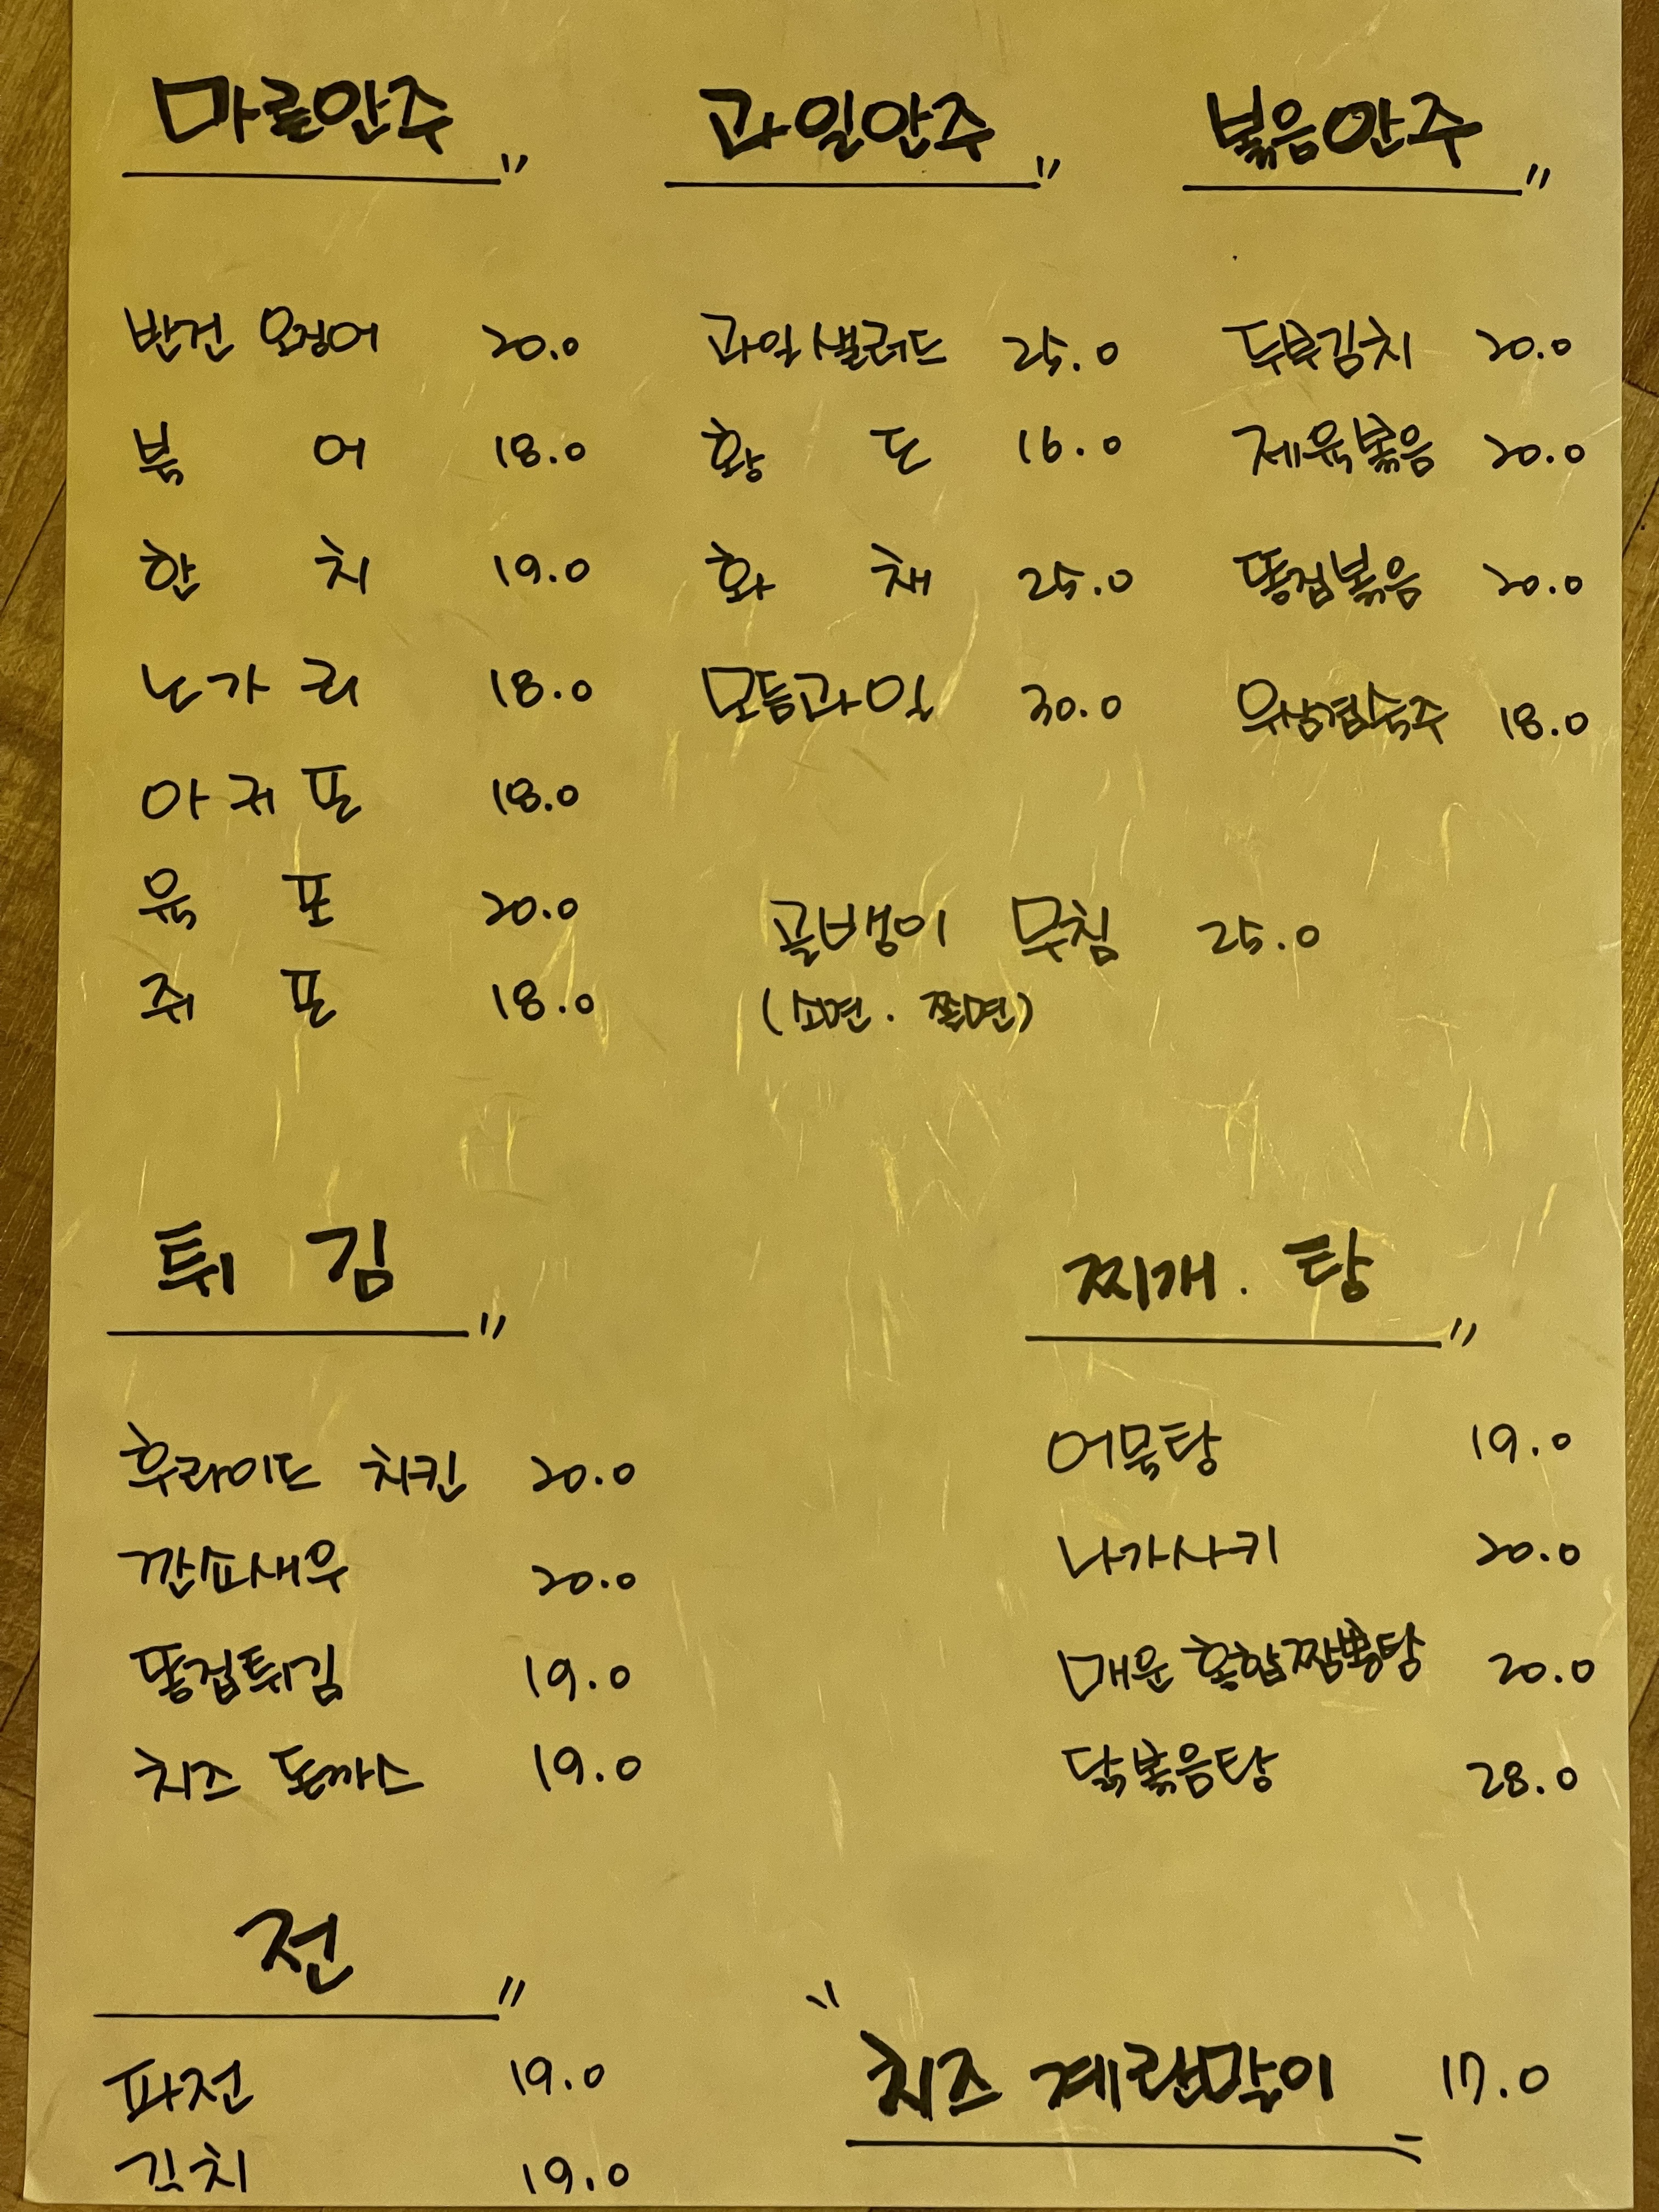 마른안주
반건 오징어 20.0
북어 18.0
한치 19.0
노가리 18.0
아귀포 18.0
육포 20.0
쥐포 18.0
과일안주
과일샐러드 25.0
황도 16.0
화채 25.0
모듬과일 30.0
볶음안주
두부김치 20.0
제육볶음 20.0
똥집볶음 20.0
우삼겹숙주 18.0
골뱅이 무침 25.0
(소면 . 쫄면)
튀김
후라이드 치킨 20.0
깐쇼새우 20.0
똥집튀김 19.0
치즈 돈까스 19.0
찌개 . 탕
어묵탕 19.0
나가사키 20.0
매운 홍합짬뽕탕 20.0
닭볶음탕 28.0
전
파전 19.0
김치 19.0
치즈 계란말이 17.0